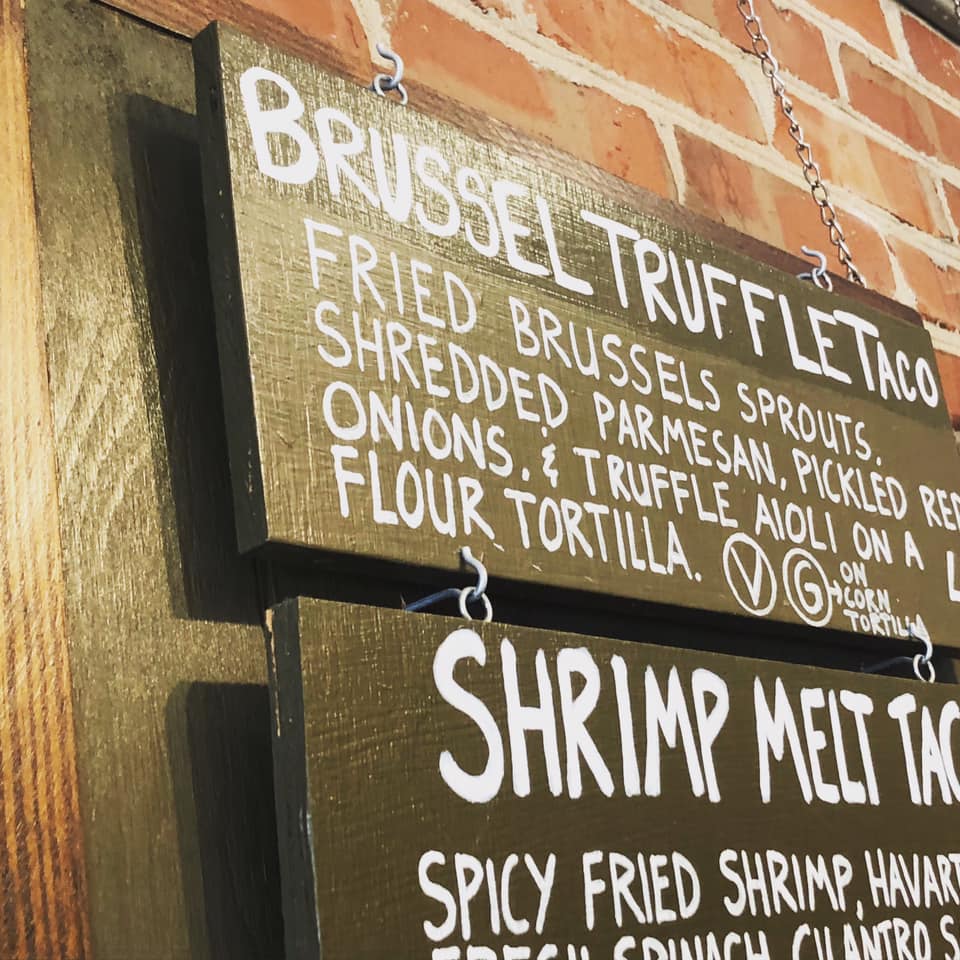 BRUSSEL TRUFFLE TACO
FRIED BRUSSELS SPROUTS,
SHREDDED PARMESAN, PICKLED RED
ONIONS, & TRUFFLE AIOLI ON A
FLOUR TORTILLA. V G → ON
CORN
TORTILLA
SHRIMP MELT TAC
SPICY FRIED SHRIMP, HAVART
FRESH SPINACH, CILANTRO S